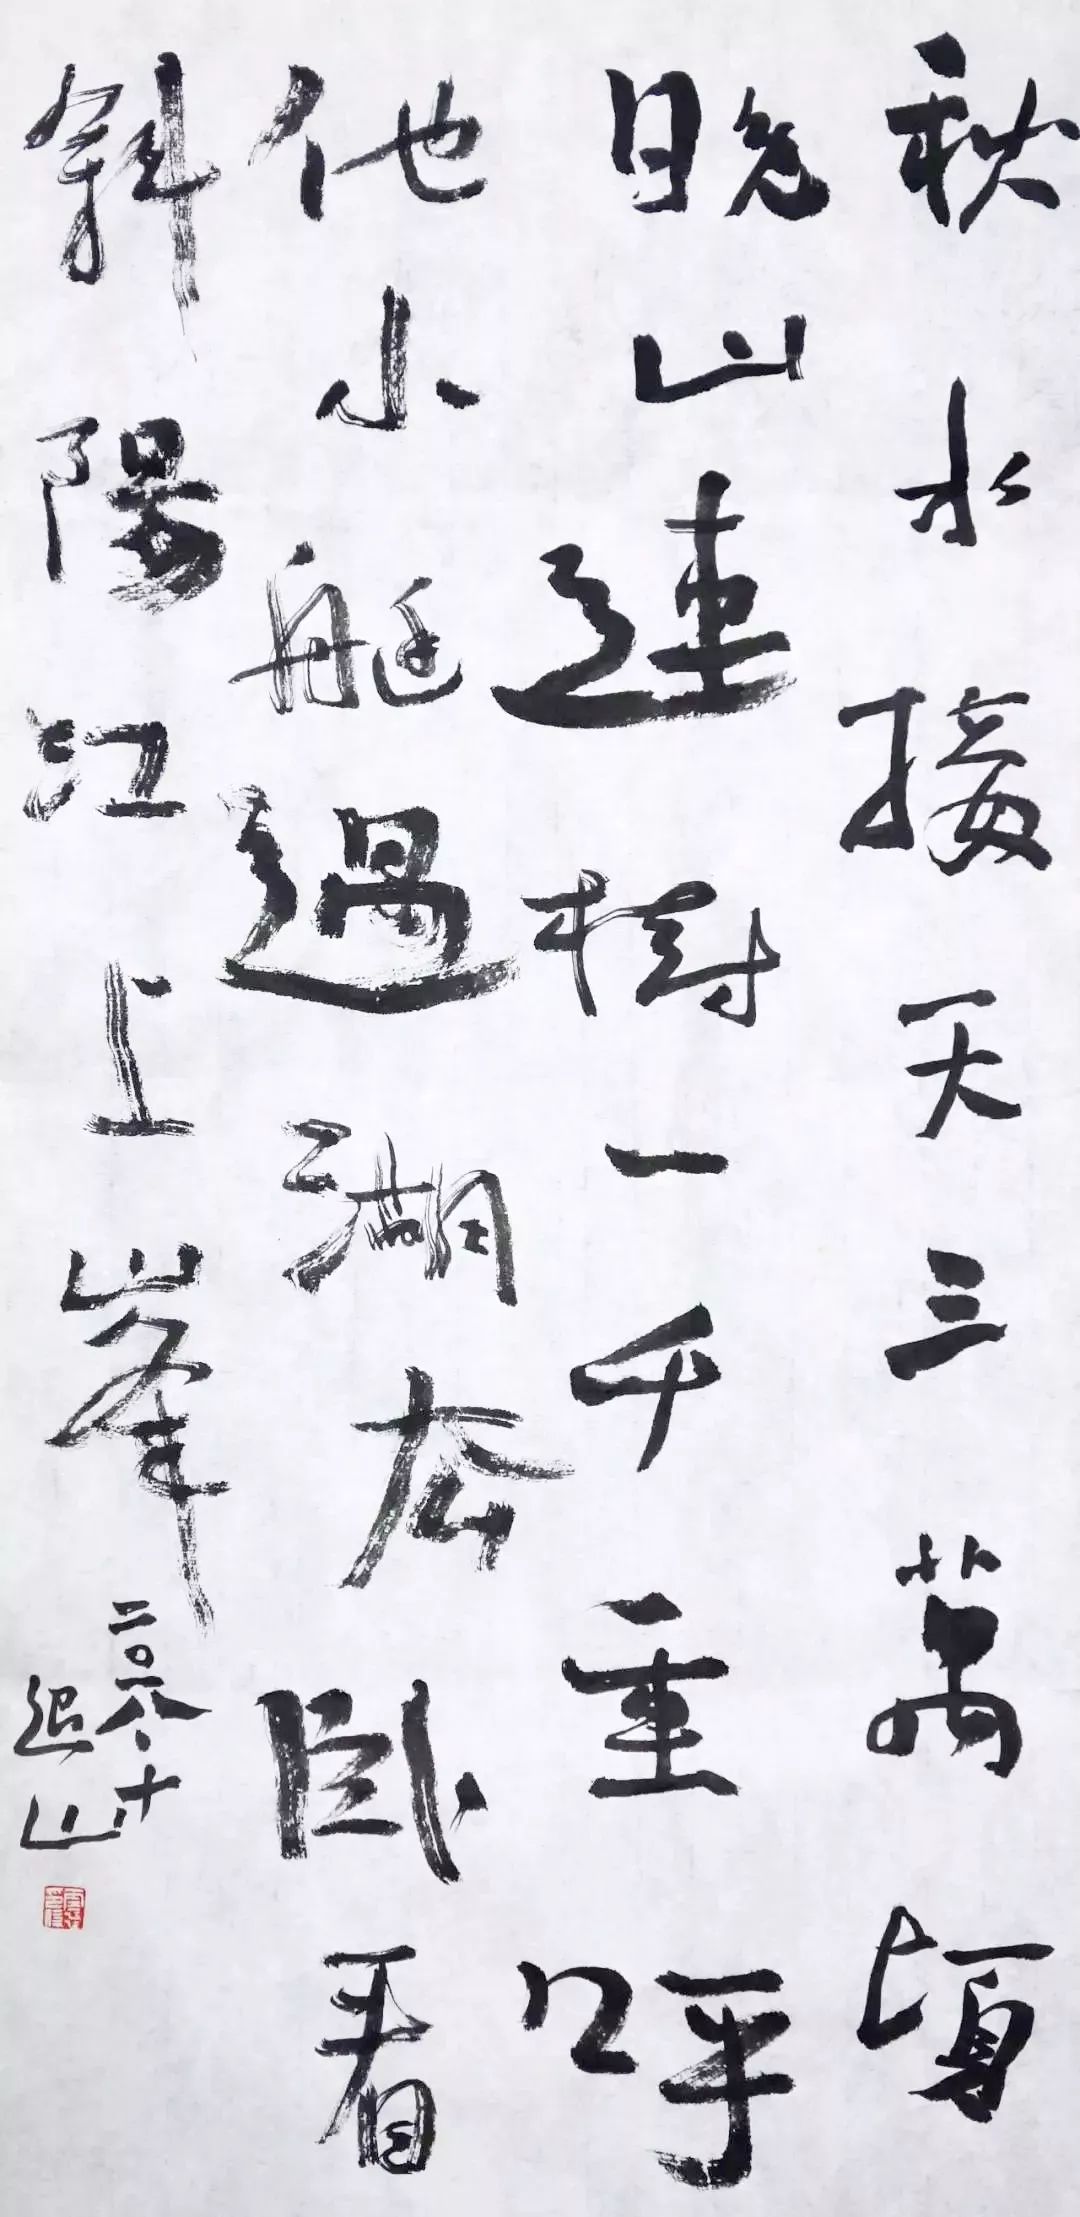 秋水接天三萬頃
晚山連樹一千重呼
他小艇過湖去卧看
斜陽江上峯
二〇一八、十
退山